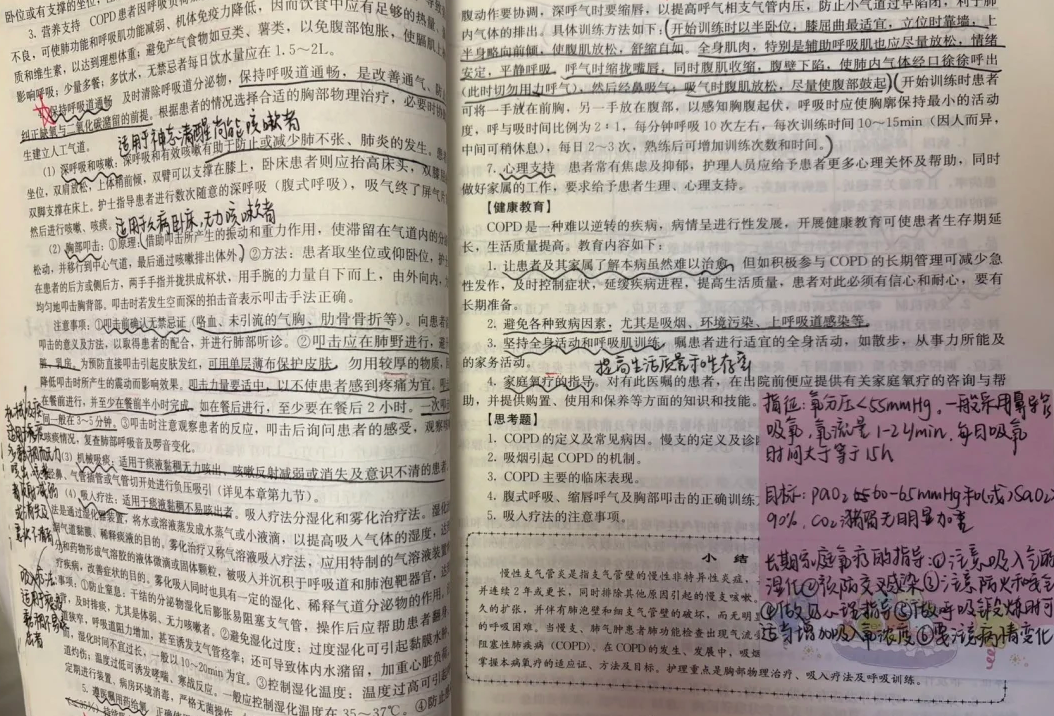 卧位或有支撑的坐位，
3. 营养支持 COPD患者因呼吸负荷
不良，可使肺功能和呼吸肌功能减弱、机体免疫力降低，因而饮食中应有足够的热量、
质和维生素，以达到理想体重；避免产气食物如豆类、薯类，以免腹部饱胀，使膈肌上
影响呼吸；少量多餐；多饮水，无禁忌者每日饮水量应在 1.5～2L。
保持呼吸道通畅 及时清除呼吸道分泌物，保持呼吸道通畅，是改善通气、防
纠正缺氧与二氧化碳潴留的前提。根据患者的情况选择合适的胸部物理治疗，必要时协
生建立人工气道。 适用于神志清醒尚能咳嗽者
(1) 深呼吸和咳嗽：深呼吸和有效咳嗽有助于防止或减少肺不张、肺炎的发生。患
坐位，双肩放松，上体稍前倾，双臂可以支撑在膝上，卧床患者则应抬高床头，双膝
双脚支撑在床上。护士指导患者进行数次随意的深呼吸（腹式呼吸），吸气终了屏气片
然后进行咳嗽、咳痰。 适用于久病卧床，无力咳嗽者
(2) 胸部叩击：①原理：借助叩击所产生的振动和重力作用，使滞留在气道内的分
松动，并移行到中心气道，最后通过咳嗽排出体外）②方法：患者取坐位或仰卧位，护
在患者的后方或侧后方，两手手指并拢拱成杯状，用手腕的力量自下而上，由外向内，
均匀地叩击胸背部。叩击时若发生空而深的拍击音表示叩击手法正确。
注意事项：①叩击前确认无禁忌证（咯血、未引流的气胸、肋骨骨折等）。向患者
叩击的意义及方法，以取得患者的配合，并进行肺部听诊。②叩击应在肺野进行，避
为预防直接叩击引起皮肤发红，可用单层薄布保护皮肤，勿用较厚的物质，
降低叩击时所产生的震动而影响效果。叩击力量要适中，以不使患者感到疼痛为宜，
在餐前进行，并至少在餐前半小时完成，如在餐后进行，至少要在餐后 2 小时。一次叩
间一般在 3～5 分钟。③叩击时注意观察患者的反应，叩击后询问患者的感受，观察
咳痰情况，复查肺部呼吸音及啰音变化。
(3) 机械吸痰：适用于痰液黏稠无力咳出，咳嗽反射减弱或消失及意识不清的患者。
鼻、气管插管或气管切开处进行负压吸引（详见本章第九节）。
(4) 吸入疗法：适用于痰液黏稠不易咳出者。吸入疗法分湿化和雾化治疗法。湿化
法是通过湿化器装置，将水或溶液蒸发成水蒸气或小液滴，以提高吸入气体的湿度，达
气道黏膜，稀释痰液的目的。雾化治疗又称气溶胶吸入疗法，应用特制的气溶液装置
分和药物形成气溶胶的液体微滴或固体颗粒，被吸入并沉积于呼吸道和肺泡靶器官，达
疗疾病，改善症状的目的。雾化吸入同时也具有一定的湿化、稀释气道分泌物的作用。
事项：①防止窒息：干结的分泌物湿化后膨胀易阻塞支气管，操作后应帮助患者翻身
及时排痰，尤其是体弱、无力咳嗽者。②避免湿化过度：过度湿化可引起黏膜水肿、
狭窄，呼吸道阻力增加，甚至诱发支气管痉挛；还可导致体内水潴留，加重心脏负荷。
湿化时间不宜过长，一般以 10～20min 为宜。③控制湿化温度：温度过高可引起
道灼伤；温度过低可诱发哮喘、寒战反应。一般应控制湿化温度在 35～37℃。④防止
定期进行装置、病房环境消毒，严格无菌操作。
5. 遵医嘱用药
腹动作要协调，深呼气时要缩唇，以提高呼气相支气管内压，防止小气道过早陷闭，利于肺
内气体的排出。具体训练方法如下：（开始训练时以半卧位，膝屈曲最适宜，立位时靠墙，上
半身略向前倾，使腹肌放松，舒缩自如。全身肌肉，特别是辅助呼吸肌也应尽量放松，情绪
安定，平静呼吸。呼气时缩拢嘴唇，同时腹肌收缩，腹壁下陷，使肺内气体经口徐徐呼出
(此时切勿用力呼气)，然后经鼻吸气，吸气时腹肌放松，尽量使腹部鼓起)（开始训练时患者
可将一手放在前胸，另一手放在腹部，以感知胸腹起伏，呼吸时应使胸廓保持最小的活动
度，呼与吸时间比例为 2∶1，每分钟呼吸 10 次左右，每次训练时间 10～15min（因人而异，
中间可稍休息），每日 2～3 次，熟练后可增加训练次数和时间。）
7. 心理支持 患者常有焦虑及抑郁，护理人员应给予患者更多心理关怀及帮助，同时
做好家属的工作，要求给予患者生理、心理支持。
【健康教育】
COPD 是一种难以逆转的疾病，病情呈进行性发展，开展健康教育可使患者生存期延
长，生活质量提高。教育内容如下：
1. 让患者及其家属了解本病虽然难以治愈，但如积极参与 COPD 的长期管理可减少急
性发作，及时控制症状，延缓疾病进程，提高生活质量，患者对此必须有信心和耐心，要有
长期准备。
2. 避免各种致病因素，尤其是吸烟、环境污染、上呼吸道感染等。
3. 坚持全身活动和呼吸肌训练，嘱患者进行适宜的全身活动，如散步，从事力所能及
的家务活动。 提高生活质量和生存率
4. 家庭氧疗的指导，对有此医嘱的患者，在出院前便应提供有关家庭氧疗的咨询与帮
助，并提供购置、使用和保养等方面的知识和技能。
【思考题】
1. COPD 的定义及常见病因。慢支的定义及诊
2. 吸烟引起 COPD 的机制。
3. COPD 主要的临床表现。
4. 腹式呼吸、缩唇呼气及胸部叩击的正确训练
5. 吸入疗法的注意事项。
指征：氧分压<55mmHg。一般采用鼻导管
吸氧，氧流量1-2L/min，每日吸氧
时间大于等于15h
目标：PaO2 于60-65mmHg和(或)SaO2
90%，CO2潴留无明显加重
长期家庭氧疗的指导：①注意吸入气的
湿化②预防交叉感染③注意防火和安全
④做好心理指导⑤做呼吸锻炼时可
适当增加吸入氧浓度⑥要注意病情变化
小 结
慢性支气管炎是指支气管壁的慢性非特异性炎症，
并连续 2 年或更长，同时排除其他原因引起的慢性咳嗽，
久的扩张，并伴有肺泡壁和细支气管壁的破坏，而无明显
的呼吸困难，当慢支、肺气肿患者肺功能检查出现气流
阻塞性肺疾病（COPD）。在 COPD 的发生、发展中，吸烟
掌握本病氧疗的适应证、方法及目标。护理重点是胸部物理治疗、吸入疗法及呼吸训练。